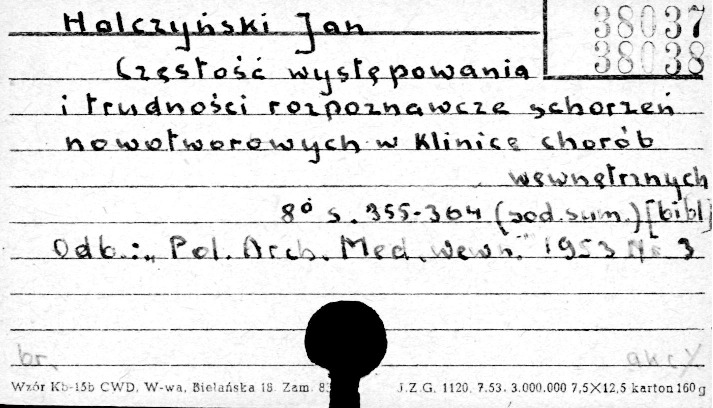 Halczyński Jan
38037
38038
Częstość występowania
i trudności rozpoznawcze schorzeń
nowotworowych w Klinice chorób
wewnętrznych
8° s. 355-364 (sod. sum.) [bibl]
Odb.: „Pol. Arch. Med. wewn." 1953 Nr 3
br. akc
Wzór Kb-15b CWD, W-wa, Bielańska 18. Zam. J.Z.G. 1120. 7.53. 3.000.000 7,5×12,5 karton 160 g